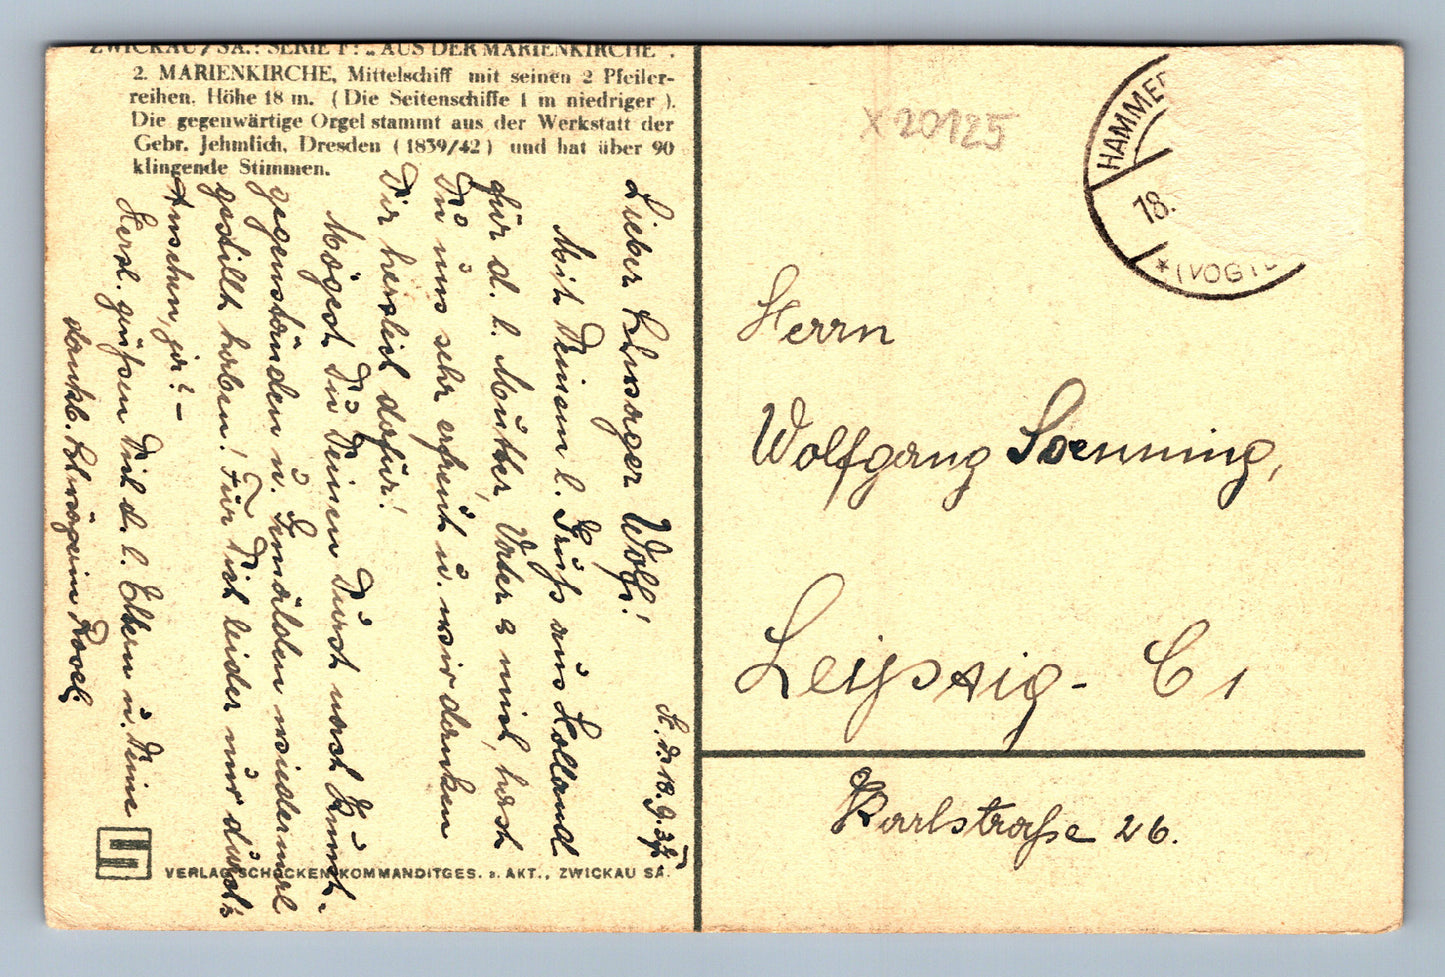 ZWICKAU / SA.: SERIE I: „AUS DER MARIENKIRCHE“.
2. MARIENKIRCHE, Mittelschiff mit seinen 2 Pfeiler-
reihen. Höhe 18 m. (Die Seitenschiffe 1 m niedriger).
Die gegenwärtige Orgel stammt aus der Werkstatt der
Gebr. Jehmlich, Dresden (1839/42) und hat über 90
klingende Stimmen.
St. d. 18.9.37.
Lieber Schwager Wolf!
Mit Deinem l. Gruß aus Holland
für d. l. Mutter, Vater & mich, hast
Du uns sehr erfreut u. wir danken
Dir herzlich dafür!
Mögest Du Deinen Durst nach Kunst-
gegenständen u. Gemälden wiedermal
gestillt haben! Für Dich leider nur durch's
Ansehen, ja? –
Herzl. grüßen Dich d. l. Eltern u. Deine
dankb. Schwägerin Rosel.
VERLAG SCHOCKEN KOMMANDITGES. a. AKT., ZWICKAU SA.
x 20125
HAMMER
18.
* (VOGTL
Herrn
Wolfgang Soenning,
Leipzig - C 1
Karlstraße 26.